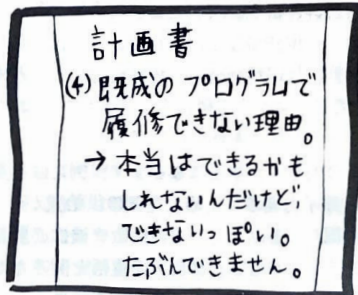 計画書
(4) 既成のプログラムで
履修できない理由。
→ 本当はできるかも
しれないんだけど
できないっぽい。
たぶんできません。